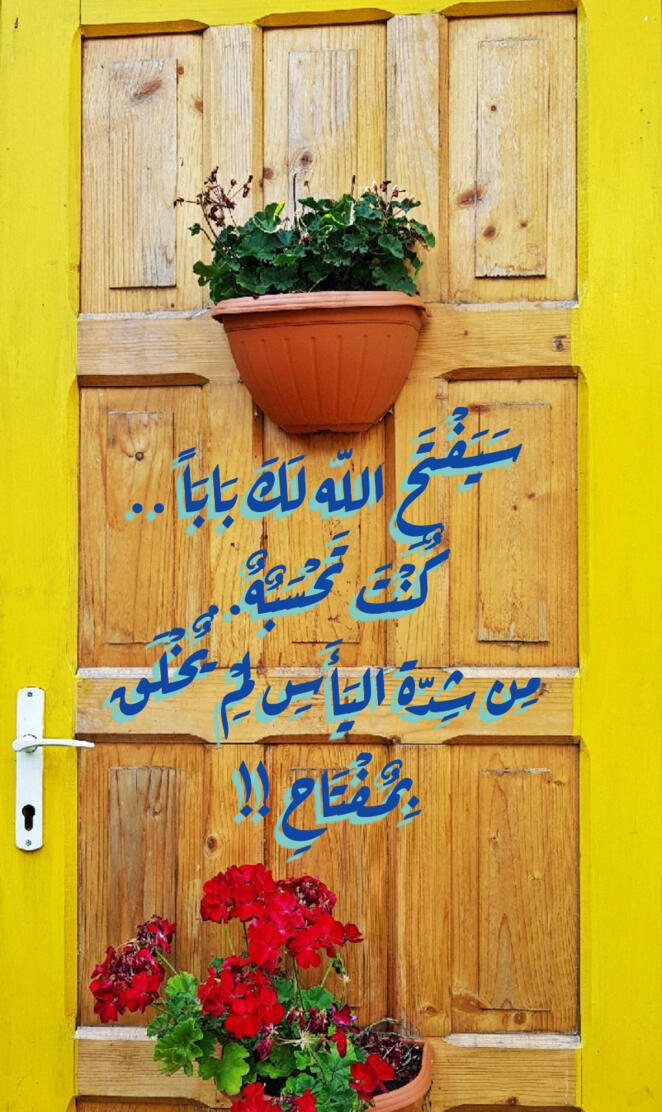 سَيَفْتَح اللّه لَكَ بَابَاً ..
كُنْتَ تَحْسَبُهُ..
مِن شِدّة اليَأَسِ لَمِ يُخْلَق
بِمُفْتَاحِ !!